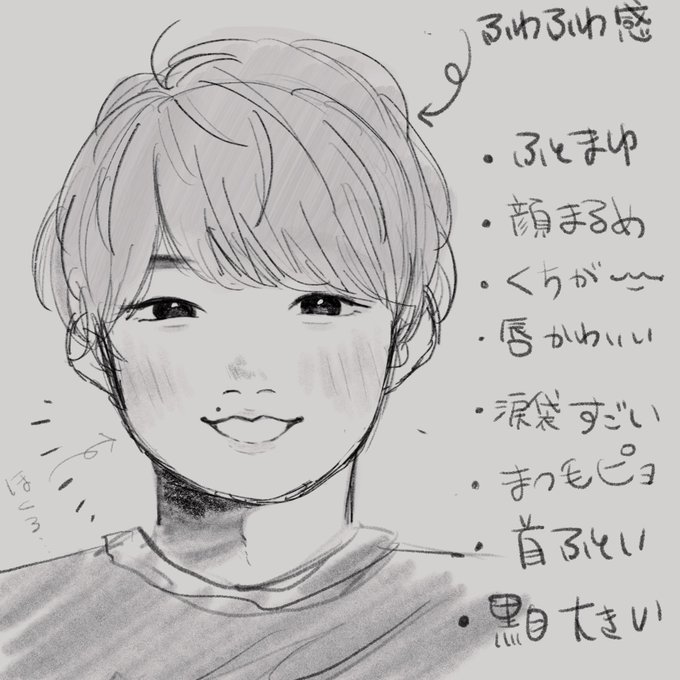 ふわふわ感
・ふとまゆ
・顔まるめ
・くちが
・唇かわいい
・涙袋すごい
・まつ毛ピョ
・首ふとい
・黒目大きい
ほくろ…